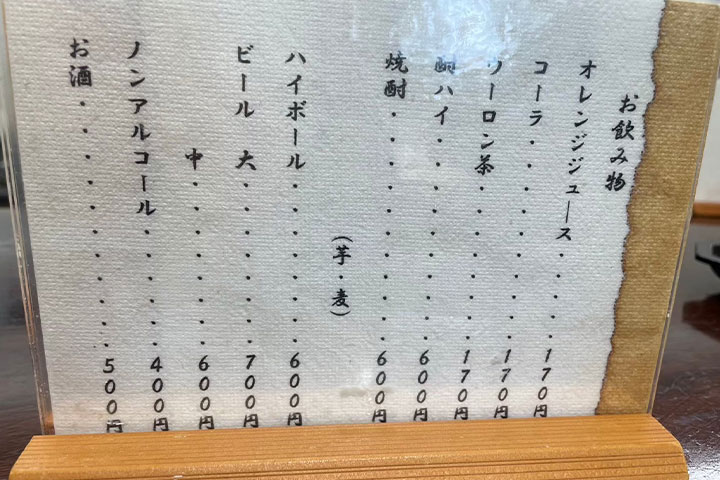 お飲み物
オレンジジュース・・・・・170円
コーラ・・・・・・・・・・170円
ウーロン茶・・・・・・・・170円
酎ハイ・・・・・・・・・・600円
焼酎・・・・・・・・・・・600円
（芋・麦）
ハイボール・・・・・・・・600円
ビール　大・・・・・・・・700円
中・・・・・・・・600円
ノンアルコール・・・・・・400円
お酒・・・・・・・・・・・500円